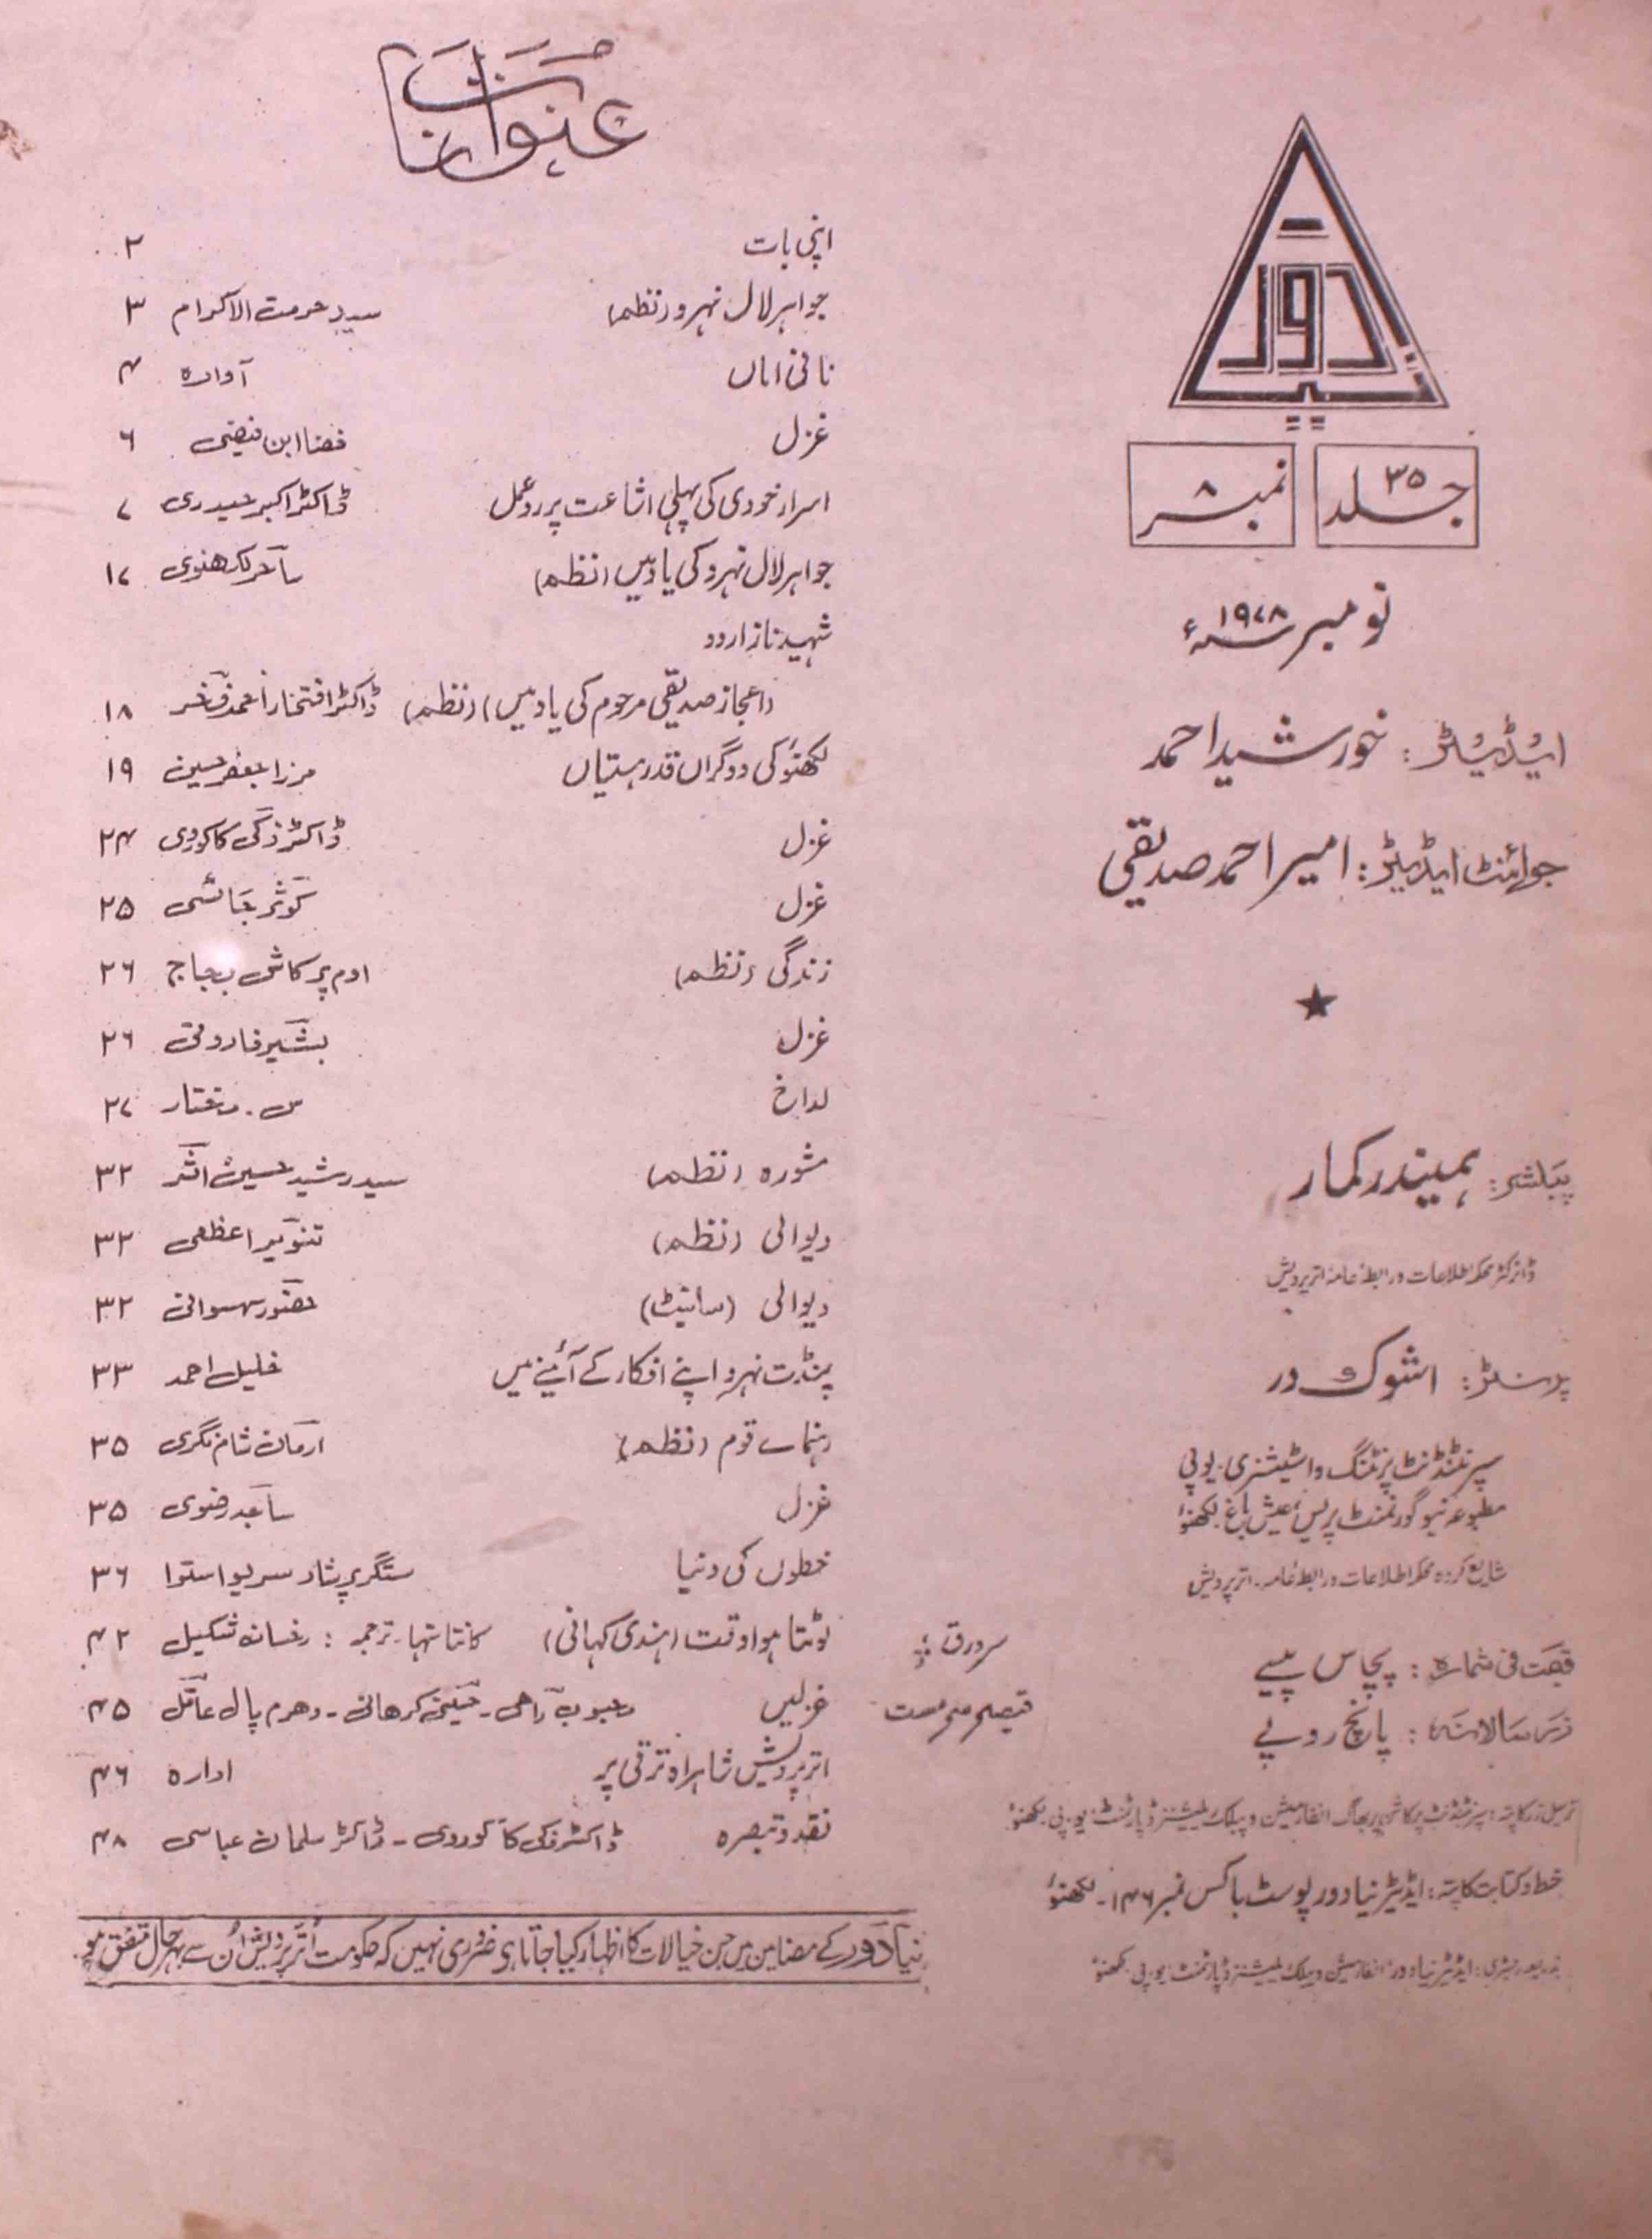 نیا دور
جلد ۳۵
نمبر ۸
نومبر ۱۹۷۸ء
ایڈیٹر: خورشید احمد
جوائنٹ ایڈیٹر: امیر احمد صدیقی
پبلشر: مہیندر کمار
ڈائرکٹر محکمہ اطلاعات و رابطہ عامہ اترپردیش
پرنٹر: اشوک در
سپرنٹنڈنٹ پرنٹنگ و اسٹیشنری۔ یوپی
مطبوعہ نیو گورنمنٹ پریس، عیش باغ۔ لکھنؤ
شایع کردہ محکمہ اطلاعات و رابطہ عامہ۔ اترپردیش
قیمت فی شمارہ: پچاس پیسے
زر سالانہ: پانچ روپے
ترسیل زر کا پتہ: سپرنٹنڈنٹ پرکاشن پربھاگ انفارمیشن و پبلک ریلیشنز ڈپارٹمنٹ یو۔پی۔ لکھنؤ
خط و کتابت کا پتہ: ایڈیٹر نیا دور پوسٹ باکس نمبر ۱۴۶۔ لکھنؤ
بذریعہ رجسٹری: ایڈیٹر نیا دور انفارمیشن و پبلک ریلیشنز ڈپارٹمنٹ یو۔پی۔ لکھنؤ
سرورق:
قیصر سرمست
عنوانات
اپنی بات ۲
جواہر لال نہرو (نظم) سید حرمت الاکرام ۳
نانی اماں آوارہ ۴
غزل فضا ابن فیضی ۶
اسرار خودی کی پہلی اشاعت پر ردعمل ڈاکٹر اکبر حیدری ۷
جواہر لال نہرو کی یاد میں (نظم) ساحر لکھنوی ۱۷
شہید ناز اردو
(اعجاز صدیقی مرحوم کی یاد میں) (نظم) ڈاکٹر افتخار احمد فخر ۱۸
لکھنؤ کی دو گراں قدر ہستیاں مرزا جعفر حسین ۱۹
غزل ڈاکٹر ذکی کاکوروی ۲۴
غزل کوثر جائسی ۲۵
زندگی (نظم) اوم پرکاش بجاج ۲۶
غزل بشیر فاروقی ۲۶
لداخ س۔ مختار ۲۷
مشورہ (نظم) سید رشید حسین اثر ۳۲
دیوالی (نظم) تنویر اعظمی ۳۲
دیوالی (سانیٹ) حضور سہسوانی ۳۲
پنڈت نہرو اپنے افکار کے آئینے میں خلیل احمد ۳۳
رہنمائے قوم (نظم) ارمان شام نگری ۳۵
غزل ساجد رضوی ۳۵
خطوں کی دنیا ستگر پرشاد سریواستوا ۳۶
ٹوٹتا ہوا وقت (ہندی کہانی) کانتا سنہا۔ ترجمہ: رخسانہ شکیل ۴۲
غزلیں محبوب راہی۔ کرھانی۔ دھرم پال عاقل ۴۵
اترپردیش شاہراہ ترقی پر ادارہ ۴۶
نقد و تبصرہ ڈاکٹر ذکی کاکوروی۔ ڈاکٹر سلمان عباسی ۴۸
نیا دور کے مضامین میں جن خیالات کا اظہار کیا جاتا ہے ضروری نہیں کہ حکومت اُترپردیش اُن سے بہرحال متفق ہو۔